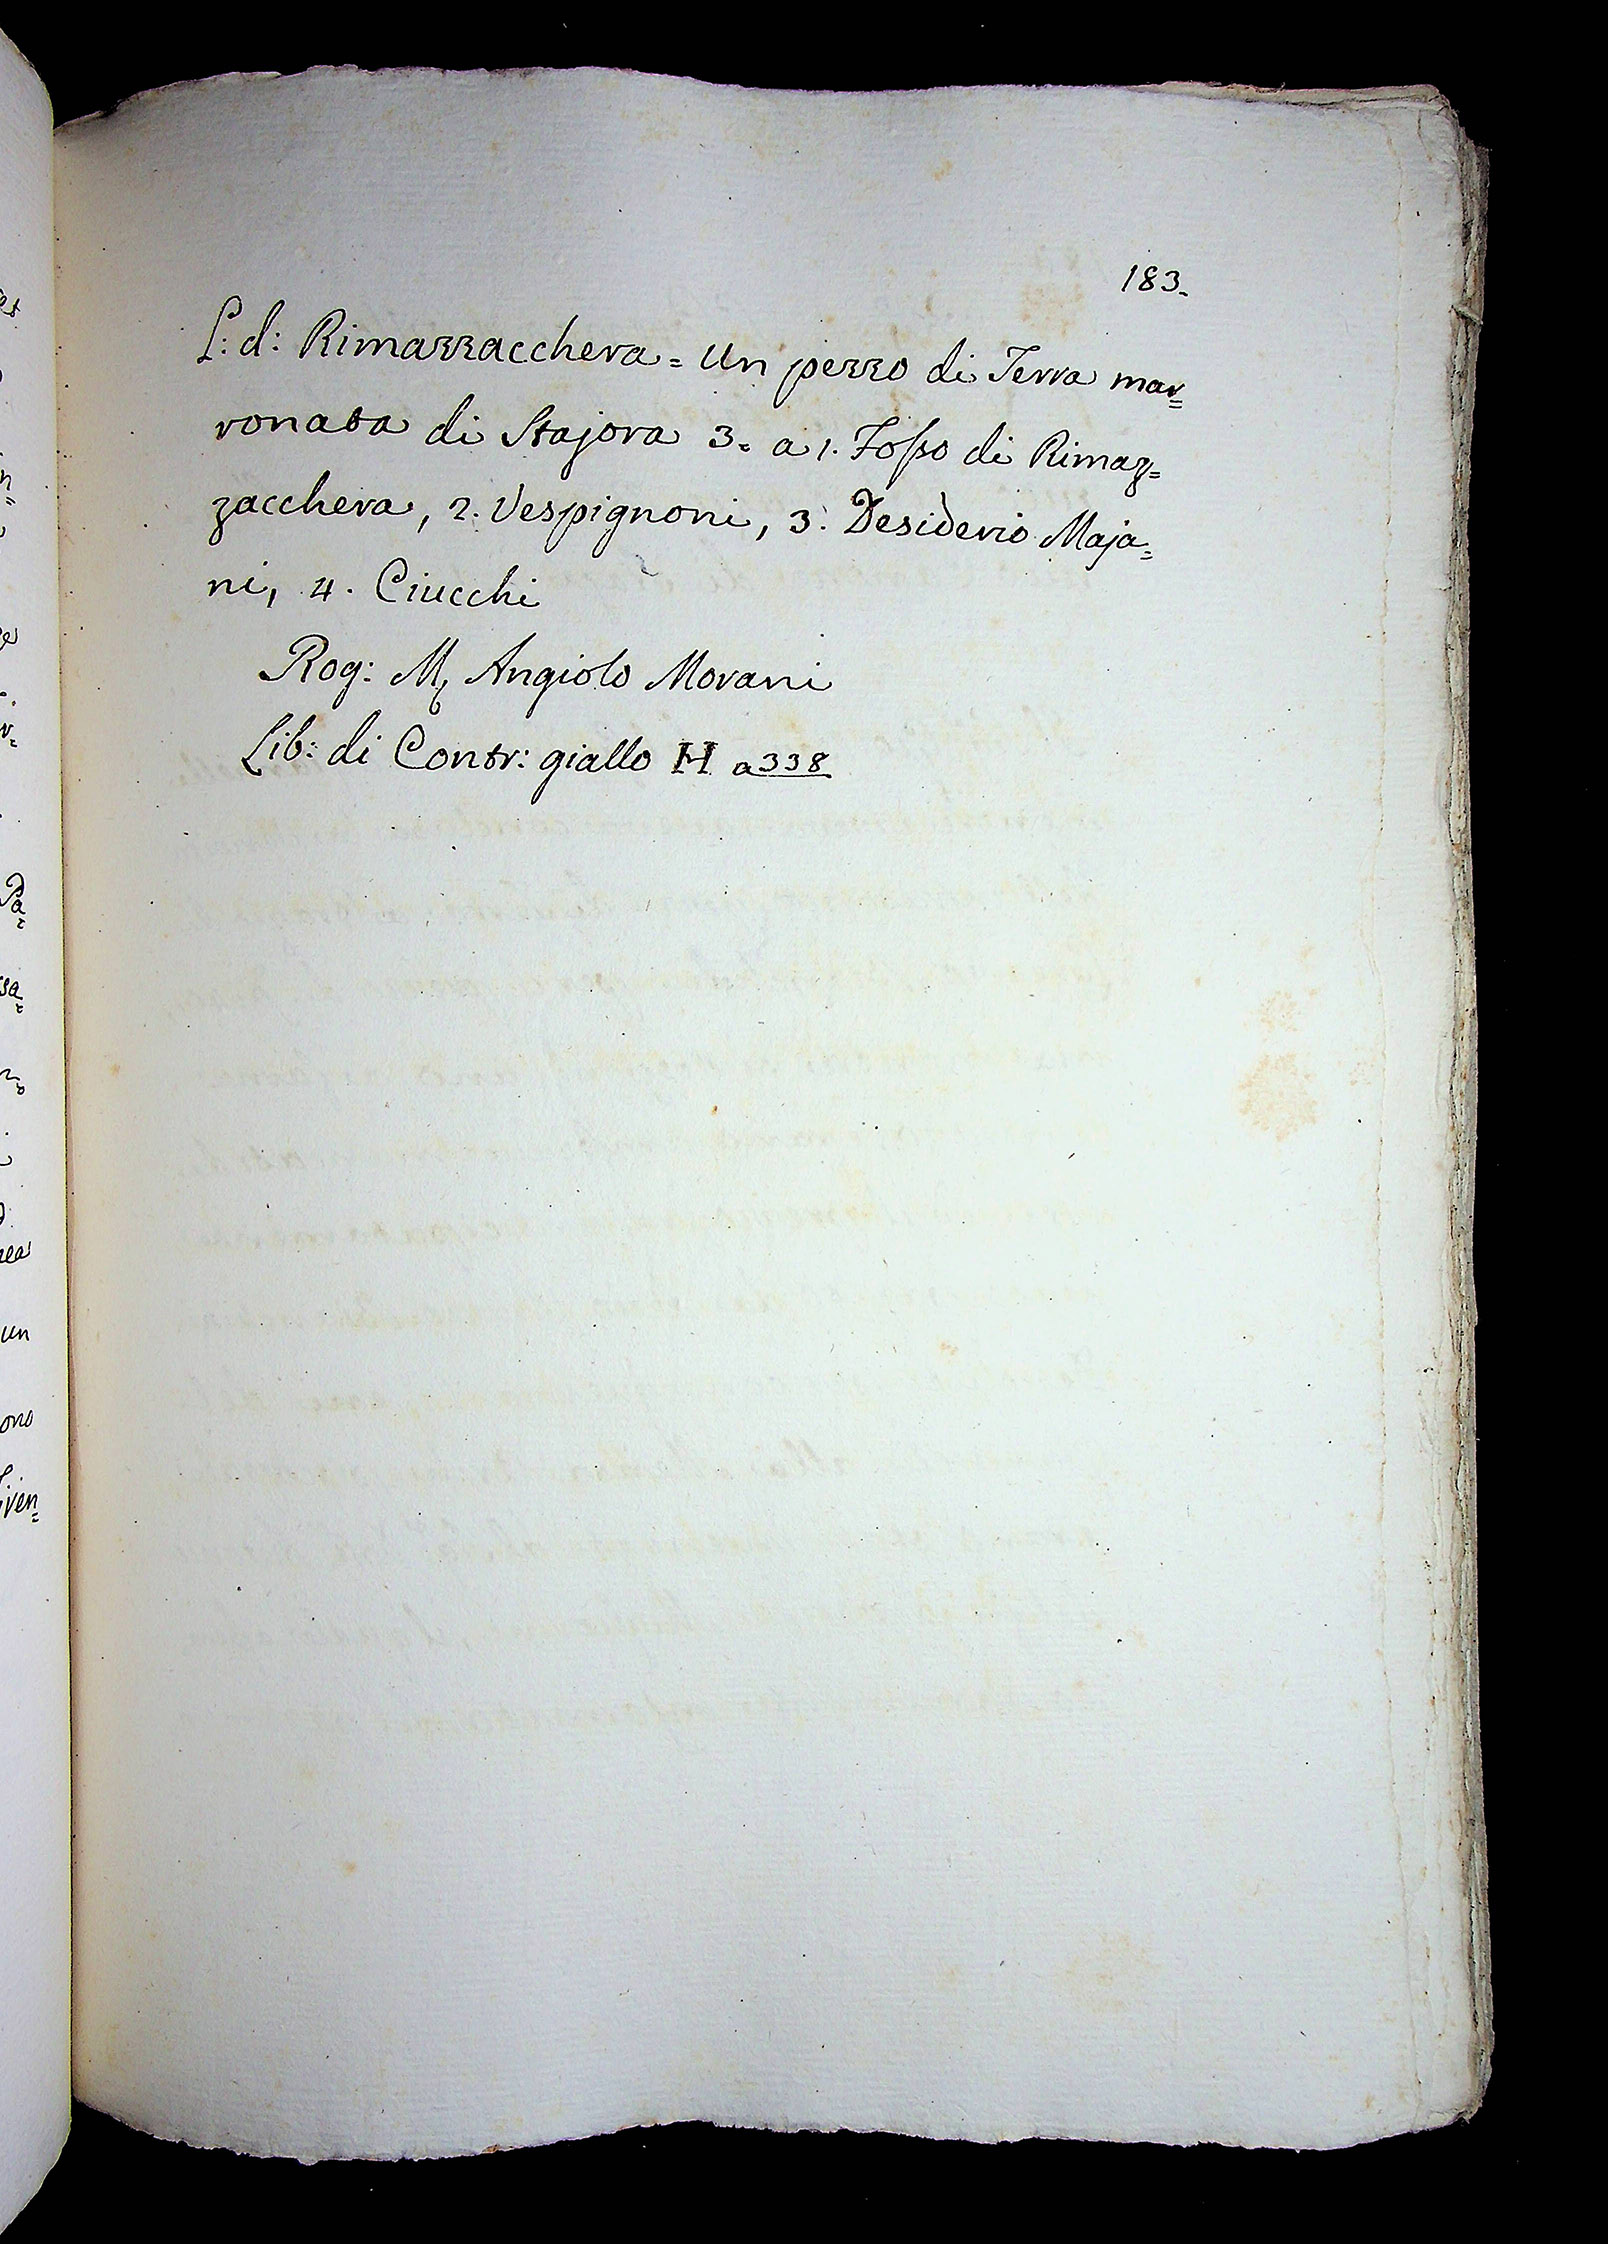 183.
L: d: Rimazzacchera = Un pezzo di Terra mar=
ronata di Stajora 3. a 1. Fosso di Rimaz=
zacchera, 2. Vespignoni, 3. Desiderio Maja=
ni, 4. Ciucchi
Rog: M. Angiolo Morani
Lib: di Contr: giallo H a 338